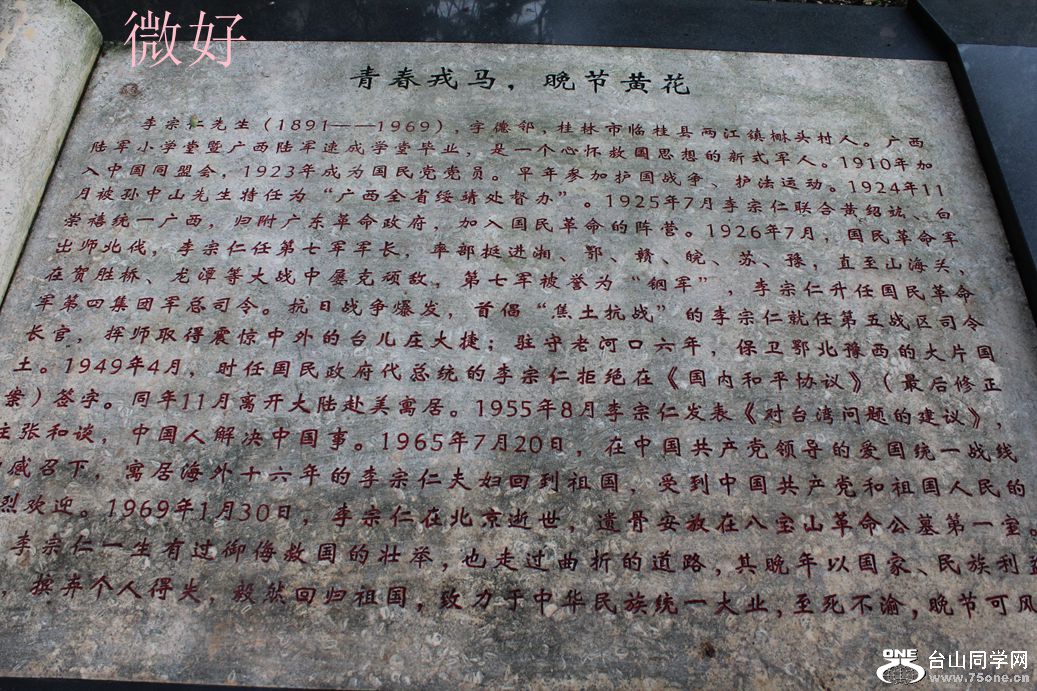 微好
青春戎马，晚节黄花
李宗仁先生（1891——1969），字德邻，桂林市临桂县两江镇㮾头村人。广西
陆军小学堂暨广西陆军速成学堂毕业，是一个心怀救国思想的新式军人。1910年加
入中国同盟会，1923年成为国民党党员。早年参加护国战争、护法运动。1924年11
月被孙中山先生特任为“广西全省绥靖处督办”。1925年7月李宗仁联合黄绍竑、白
崇禧统一广西，归附广东革命政府，加入国民革命的阵营。1926年7月，国民革命军
出师北伐，李宗仁任第七军军长，率部挺进湘、鄂、赣、皖、苏、豫，直至山海关，
在贺胜桥、龙潭等大战中屡克顽敌，第七军被誉为“钢军”，李宗仁升任国民革命
军第四集团军总司令。抗日战争爆发，首倡“焦土抗战”的李宗仁就任第五战区司令
长官，挥师取得震惊中外的台儿庄大捷；驻守老河口六年，保卫鄂北豫西的大片国
土。1949年4月，时任国民政府代总统的李宗仁拒绝在《国内和平协议》（最后修正
案）签字。同年11月离开大陆赴美寓居。1955年8月李宗仁发表《对台湾问题的建议》，
主张和谈，中国人解决中国事。1965年7月20日，在中国共产党领导的爱国统一战线
感召下，寓居海外十六年的李宗仁夫妇回到祖国，受到中国共产党和祖国人民的
烈欢迎。1969年1月30日，李宗仁在北京逝世，遗骨安放在八宝山革命公墓第一室。
李宗仁一生有过御侮救国的壮举，也走过曲折的道路，其晚年以国家、民族利益
，摈弃个人得失，毅然回归祖国，致力于中华民族统一大业，至死不渝，晚节可风
ONE 台山同学网
www.75one.cn